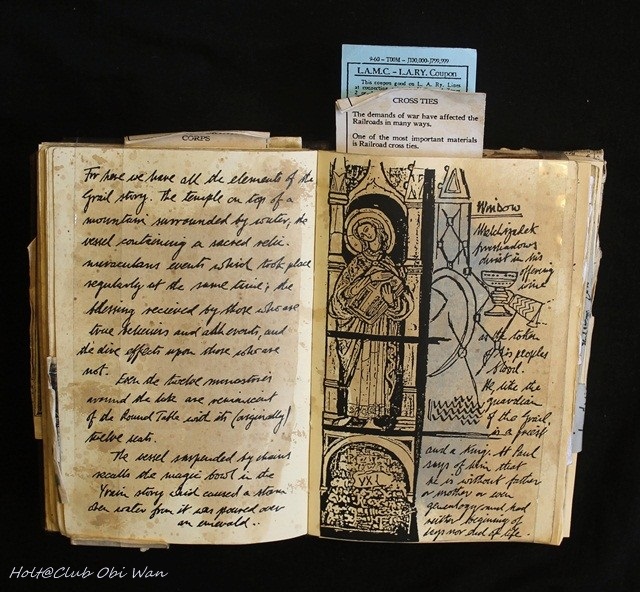 9-60 – T00M – J100,000-J799,999
L.A.M.C. – L.A.RY. Coupon
This coupon good on L. A. Ry. Lines
CROSS TIES
The demands of war have affected the
Railroads in many ways.
One of the most important materials
is Railroad cross ties.
CORPS
For here we have all the elements of the
Grail story. The temple on top of a
mountain surrounded by water, the
vessel containing a sacred relic
miraculous events which took place
regularly at the same time; the
blessing received by those who are
true believers and and
the dire effects upon those who are
not.
Even the twelve monasteries
around the lake are reminiscent
of the Round Table with its (originally)
twelve seats.
The vessel suspended by chains
recalls the magic bowl in the
Yvain story which caused a storm
when water from it was poured over
an emerald..
Window
Melchizedek
foreshadows
christ in his
offering
wine
as the token
of his peoples
blood.
He like the
guardian
of the Grail,
is a priest
and a king. St Paul
says of him that
he is without father
or mother or even
genealogy and had
neither beginning of
days nor end of life.
VXI
Holt@Club Obi Wan